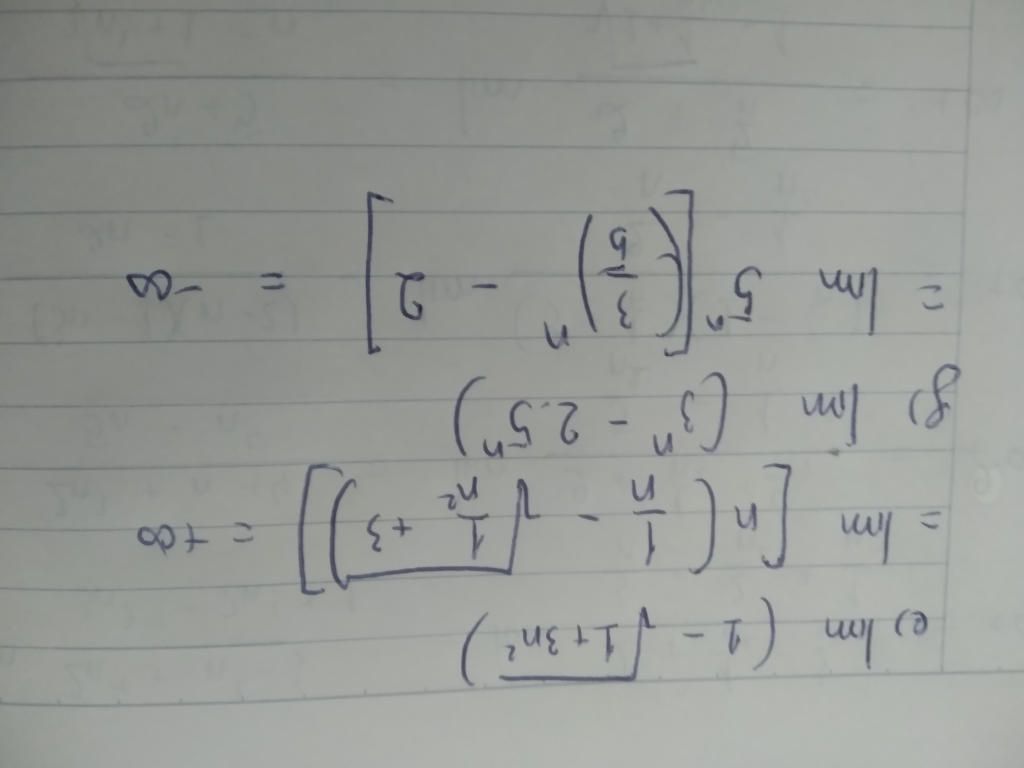 e) lim (1 - √(1+3n²))
= lim [n (1/n - √(1/n² + 3))] = +∞
g) lim (3ⁿ - 2.5ⁿ)
= lim 5ⁿ [(3/5)ⁿ - 2] = -∞